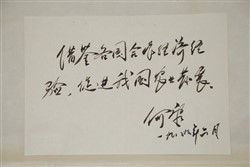 借鉴各国合作经济经
验，促进我国农业发展。
何康
一九八九年六月